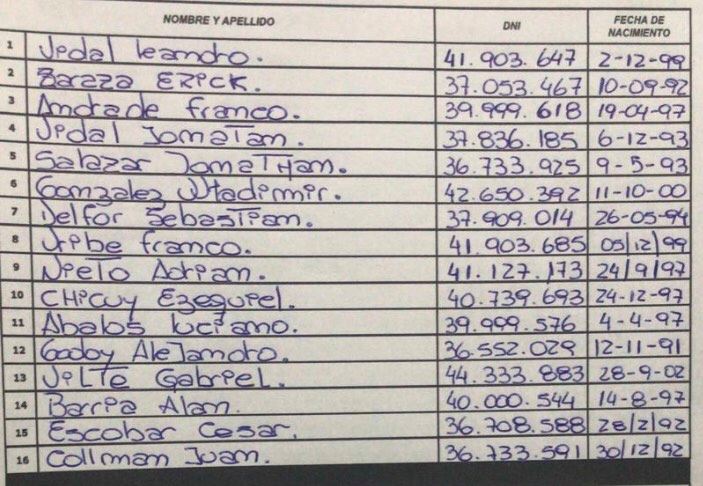 NOMBRE Y APELLIDO DNI FECHA DE NACIMIENTO
1 Vidal leandro. 41.903.647 2-12-99
2 Baraza ERICK. 37.053.467 10-09-92
3 Andrade franco. 39.999.618 19-04-97
4 Vidal Jonatan. 37.836.185 6-12-93
5 Salazar JonaTHan. 36.733.925 9-5-93
6 Gonzalez Wladimir. 42.650.392 11-10-00
7 Delfor SebasTian. 37.909.014 26-05-94
8 Uribe franco. 41.903.685 05/12/99
9 NieTo Adrian. 41.127.173 24/9/97
10 CHicuy Ezequiel. 40.739.693 24-12-97
11 Abalos luciano. 39.999.576 4-4-97
12 Godoy AleJandro. 36.552.029 12-11-91
13 ViLTe GabrieL. 44.333.883 28-9-02
14 Barria Alan. 40.000.544 14-8-97
15 Escobar Cesar. 36.708.588 28/2/92
16 Collman Juan. 36.733.591 30/12/92